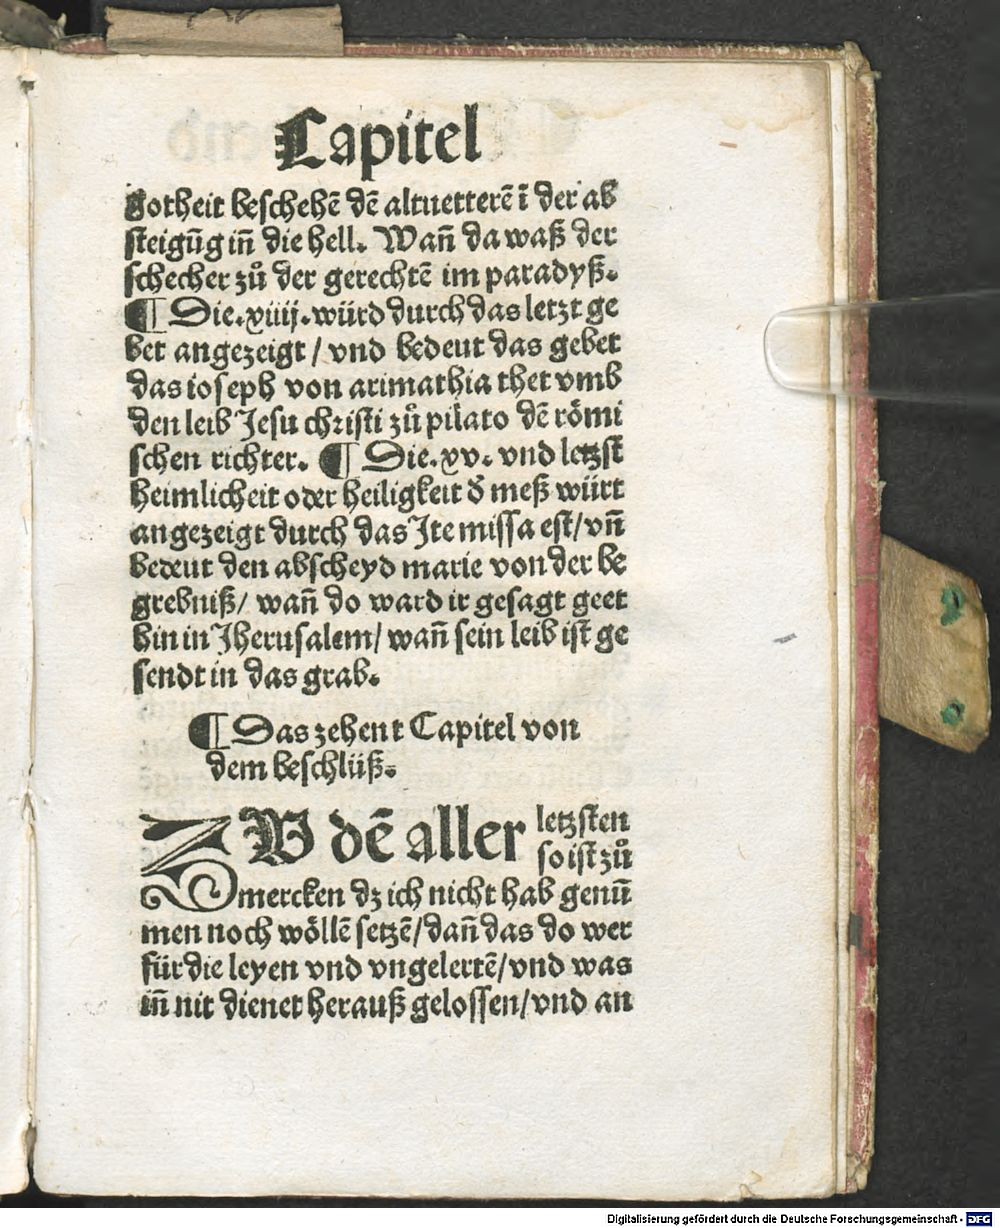 Capitel
gotheit beschehẽ dẽ altuetterẽ ĩ der ab
steigũg iñ die hell. Wañ da waß der
schecher zů der gerechtẽ im paradyß.
¶ Die.xiiij.würd durch das letzt ge
bet angezeigt / vnd bedeut das gebet
das ioseph von arimathia thet vmb
den leib Jesu christi zů pilato dẽ römi
schen richter. ¶ Die.xv. vnd letzst
heimlicheit oder heiligkeit d̕ meß würt
angezeigt durch das Ite missa est/ vñ
bedeut den abscheyd marie von der be
grebniß/ wañ do ward ir gesagt geet
hin in Jherusalem/ wañ sein leib ist ge
sendt in das grab.
¶ Das zehent Capitel von
dem beschlüß.
ZW dẽ aller letzsten
so ist zů
mercken dz ich nicht hab genũ
men noch wöllẽ setzẽ/ dañ das do wer
für die leyen vnd vngelertẽ/ vnd was
iñ nit dienet herauß gelossen/ vnd an
Digitalisierung gefördert durch die Deutsche Forschungsgemeinschaft - DFG